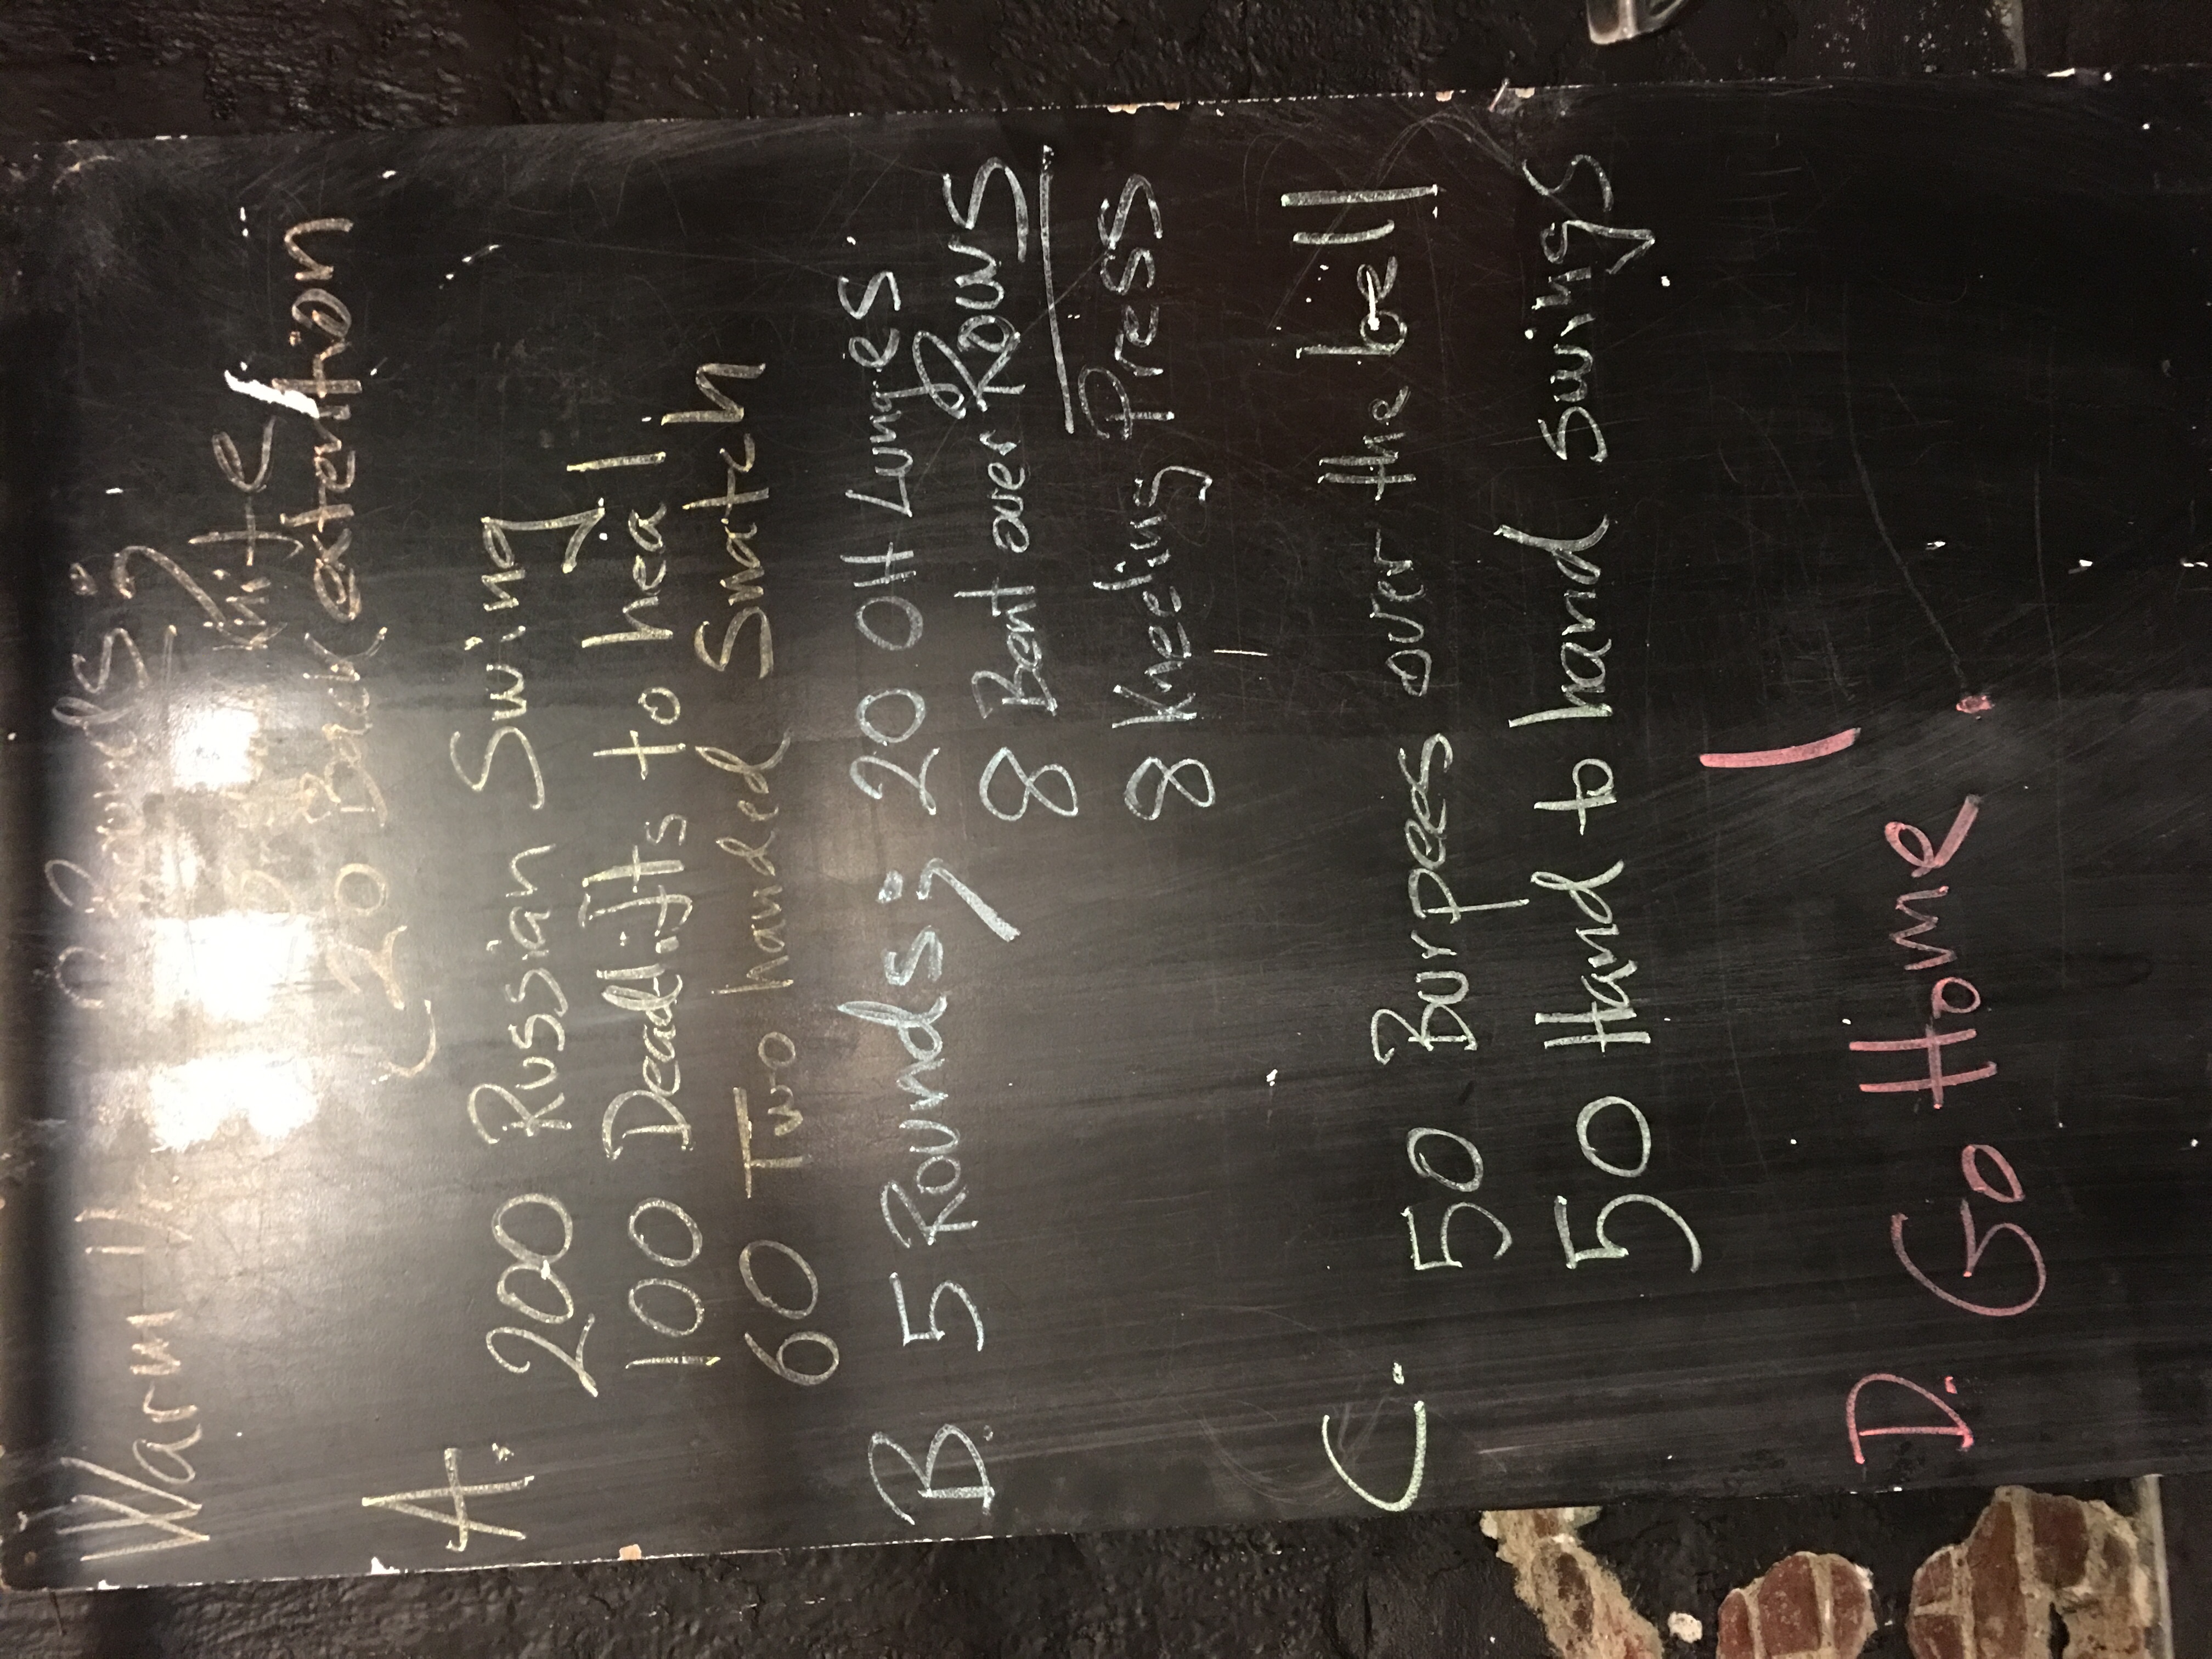 Warm Up Rounds;
Knife/
20 Back extention
A. 200 Russian Swing
100 Deadlifts to heal
60 Two handed Snatch
B. 5 Rounds; 20 OH Lunges
8 Bent over Rows
8 Kneeling Press
C. 50 Burpees over the bell
50 Hand to hand swings
D. Go Home!